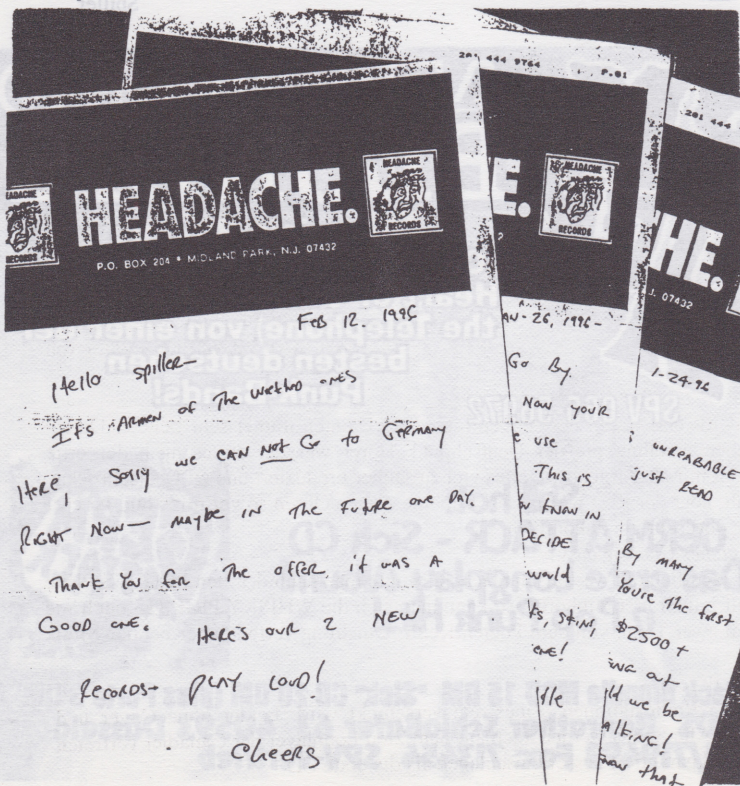 201 444 9764 P.01
201 444
HEADACHE
RECORDS
HEADACHE.
HEADACHE
RECORDS
P.O. BOX 204 • MIDLAND PARK, N.J. 07432
Feb 12. 1996
Hello Spiller—
It's Armen of The wretched ones
Here, Sorry we CAN NOT Go to Germany
Right Now— maybe in The Future one Day.
Thank You for The offer it was A
Good one. Here's our 2 New
Records— PLAY LOUD!
Cheers
E.
HEADACHE
RECORDS
AN-26, 1996-
Go By
Now your
e use
This is
Know in
DECIDE
would
ts, skins,
ene!
HE.
J. 07432
1-24-96
unreadable
just read
By many
You're The first
$2500 +
ing out
ld we be
alking!
know that